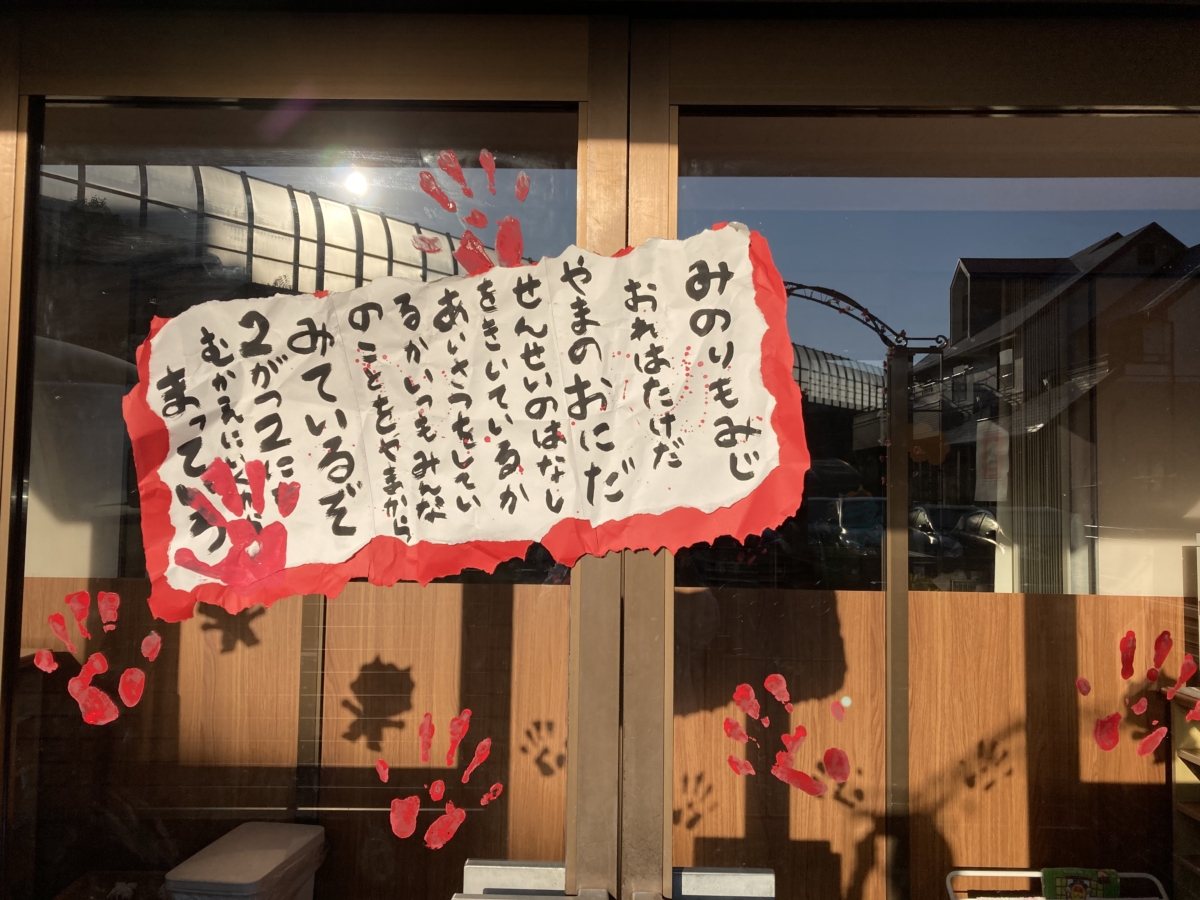 みのりもみじ
おれはたけだ
やまのおにだ
せんせいのはなし
をきいているか
あいさつをしてい
るかいつもみんな
のことをやまから
みているぞ
2がつ2に
むかえにいくから
まっていろ